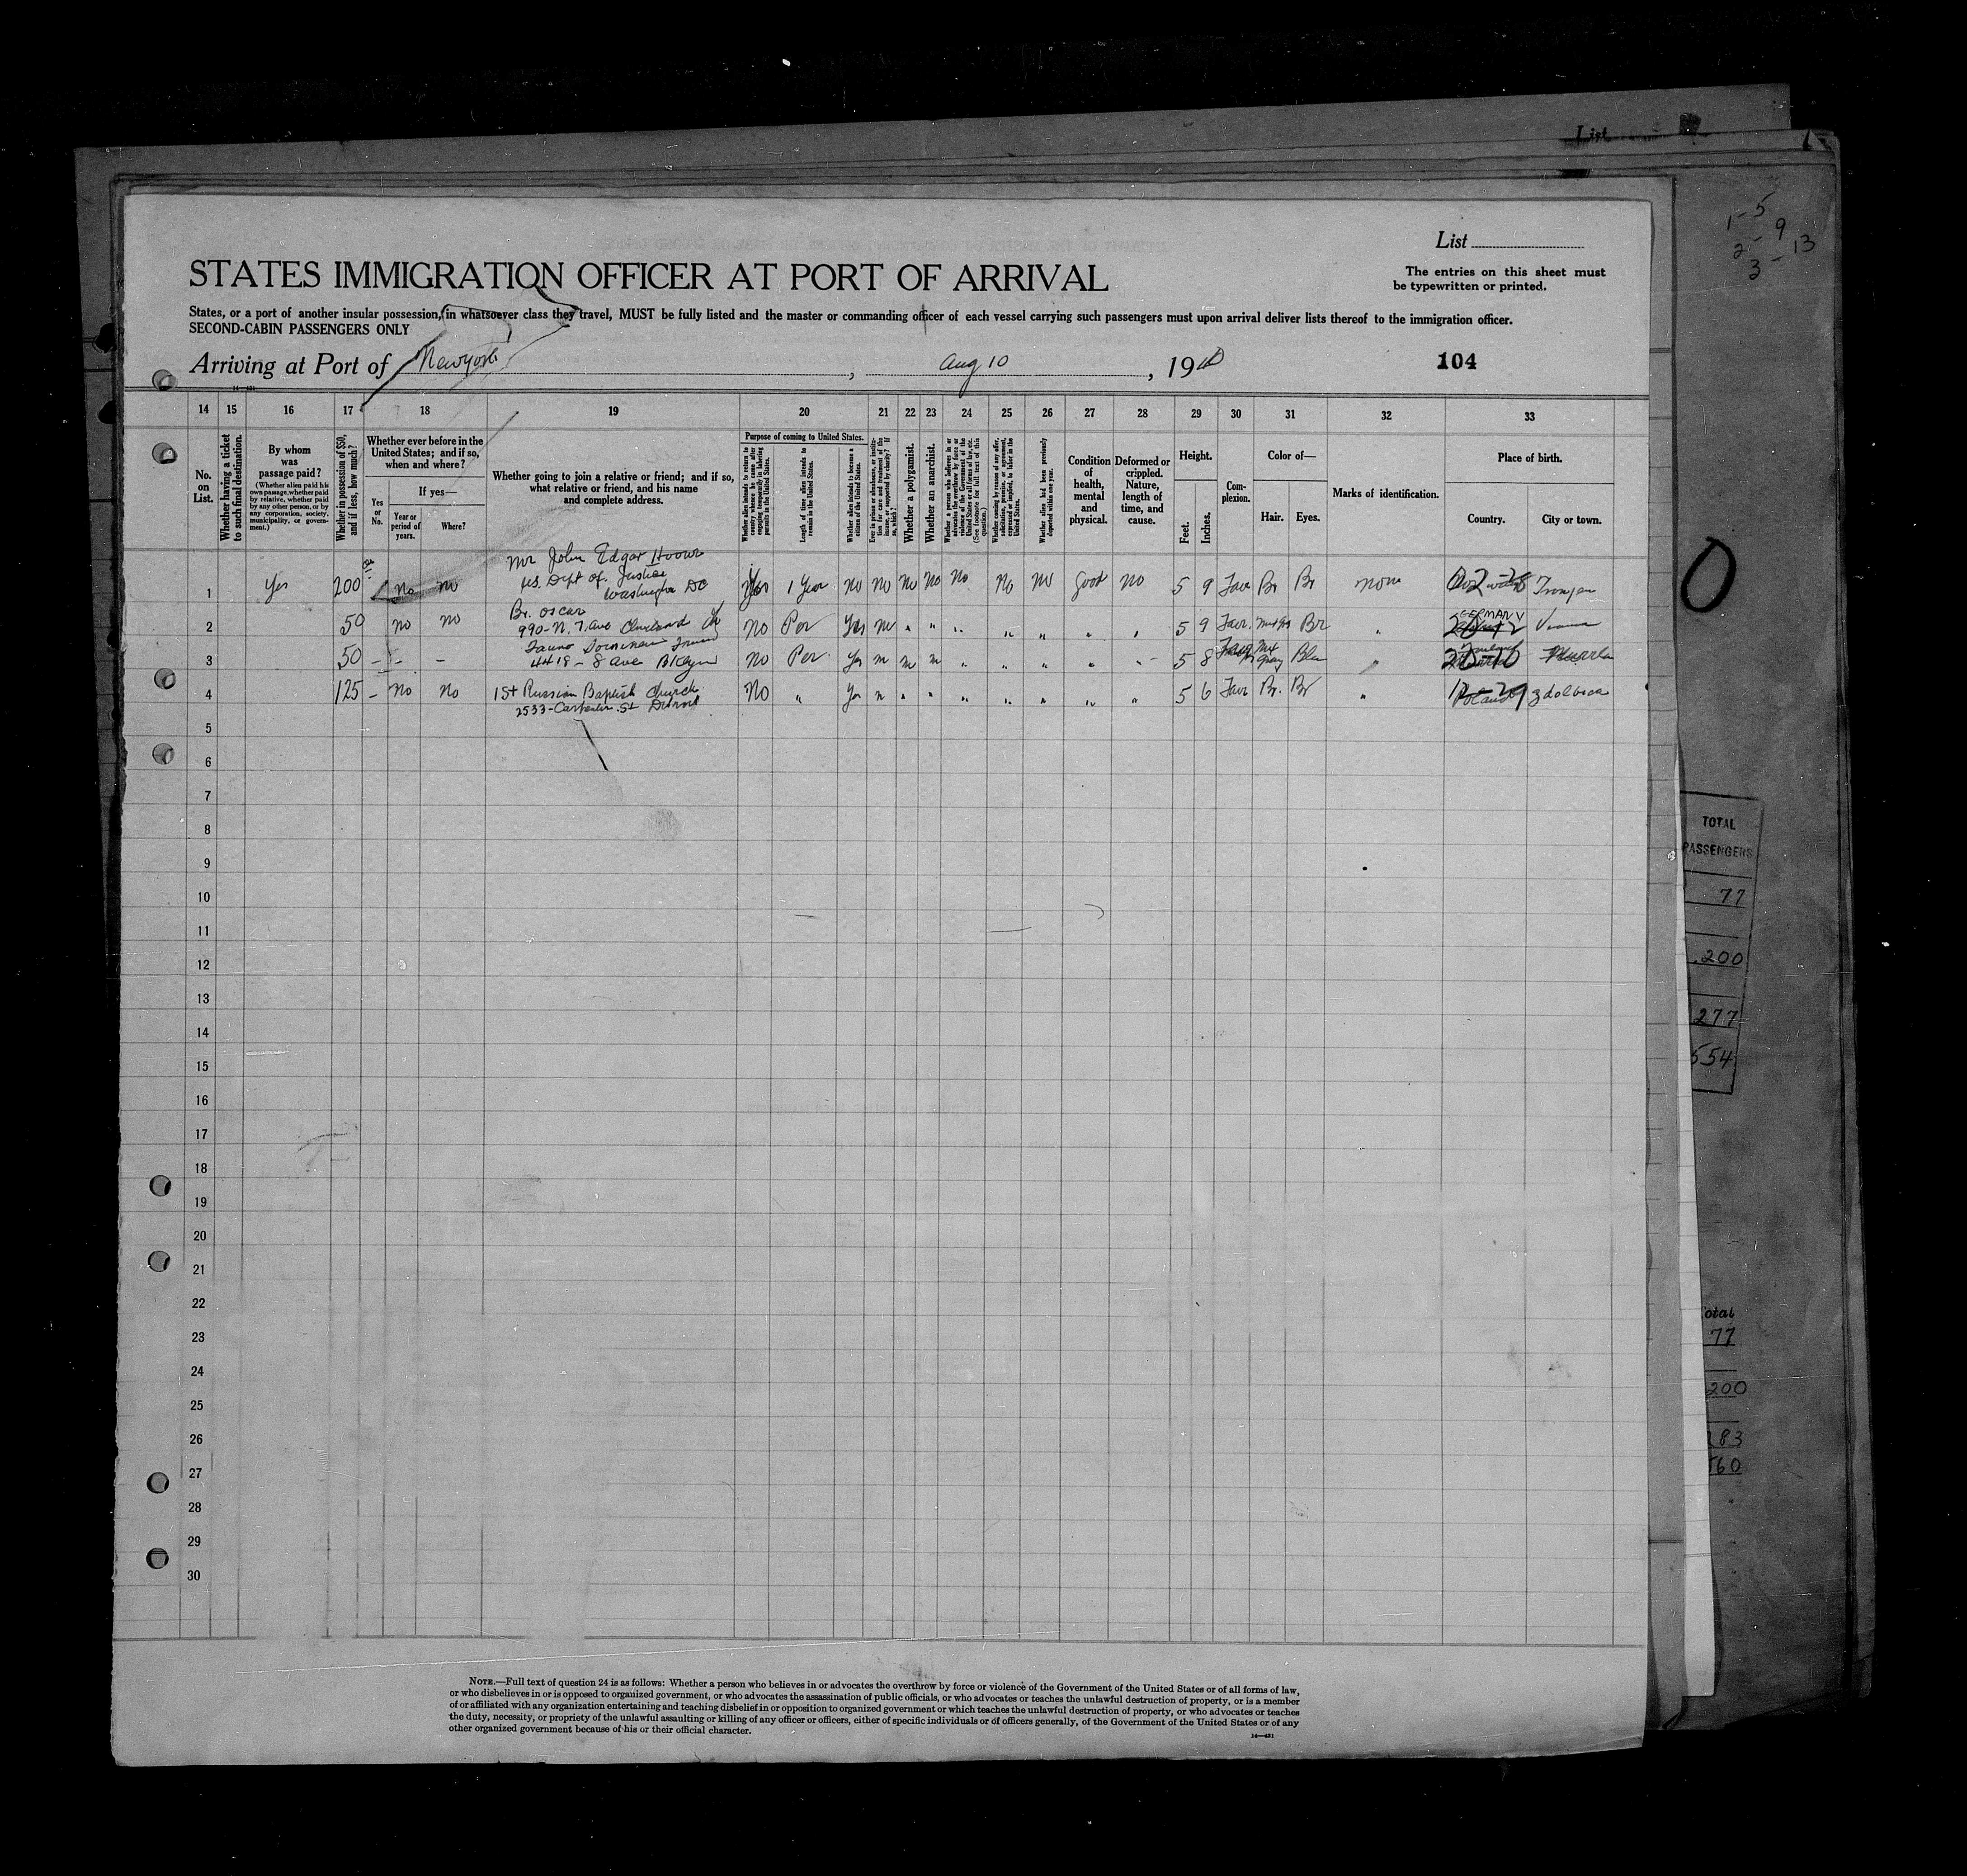 List
1-5
2-9
3-13
List
The entries on this sheet must
be typewritten or printed.
STATES IMMIGRATION OFFICER AT PORT OF ARRIVAL
States, or a port of another insular possession, in whatsoever class they travel, MUST be fully listed and the master or commanding officer of each vessel carrying such passengers must upon arrival deliver lists thereof to the immigration officer.
SECOND-CABIN PASSENGERS ONLY
Arriving at Port of New york, Aug 10, 19
104
14 15 16 17 18 19 20 21 22 23 24 25 26 27 28 29 30 31 32 33
No.
on
List.
Whether having a ticket
to such final destination.
By whom
was
passage paid?
(Whether alien paid his
own passage, whether paid
by relative, whether paid
by any other person, or by
any corporation, society,
municipality, or govern-
ment.)
Whether in possession of $50,
and if less, how much?
Whether ever before in the
United States; and if so,
when and where?
Yes
or
No.
If yes—
Year or
period of
years.
Where?
Whether going to join a relative or friend; and if so,
what relative or friend, and his name
and complete address.
Purpose of coming to United States.
Whether alien intends to return to
country whence he came after
engaging temporarily in laboring
pursuits in the United States.
Length of time alien intends to
remain in the United States.
Whether alien intends to become a
citizen of the United States.
Ever in prison or almshouse, or institu-
tion for care and treatment of the
insane, or supported by charity? If
so, which?
Whether a polygamist.
Whether an anarchist.
Whether a person who believes in or
advocates the overthrow by force or
violence of the Government of the
United States or all forms of law, etc.
(See footnote for full text of this
question.)
Whether coming by reason of any offer,
solicitation, promise, or agreement,
expressed or implied, to labor in the
United States.
Whether alien had been previously
deported within one year.
Condition
of
health,
mental
and
physical.
Deformed or
crippled.
Nature,
length of
time, and
cause.
Height.
Feet.
Inches.
Com-
plexion.
Color of—
Hair.
Eyes.
Marks of identification.
Place of birth.
Country.
City or town.
Mr John Edgar Hoover
US. Dept of Justice
Washington DC
1 Yes 200 No No Yes 1 Year No No No No No No No Good No 5 9 Fair Br Br None
Br. Oscar
990-N. 7. ave
2 50 No No No Per Yes No " " " " " " " 5 9 Fair Br " GERMANY Vienna
44 18 - 8 ave Bklyn
3 50 - - - No Per Yes " " " " 5 8 Gray Blu "
1st Russian Baptist Church
2533-Carpenter St Detroit
4 125 - No No No " Yes " " " " " " " 5 6 Fair Br. Br " Poland
5
6
7
8
9
10
11
12
13
14
15
16
17
18
19
20
21
22
23
24
25
26
27
28
29
30
0
TOTAL
PASSENGERS
77
200
277
554
Total
77
200
NOTE.—Full text of question 24 is as follows: Whether a person who believes in or advocates the overthrow by force or violence of the Government of the United States or of all forms of law,
or who disbelieves in or is opposed to organized government, or who advocates the assassination of public officials, or who advocates or teaches the unlawful destruction of property, or is a member
of or affiliated with any organization entertaining and teaching disbelief in or opposition to organized government or which teaches the unlawful destruction of property, or who advocates or teaches
the duty, necessity, or propriety of the unlawful assaulting or killing of any officer or officers, either of specific individuals or of officers generally, of the Government of the United States or of any
other organized government because of his or their official character.
14—421